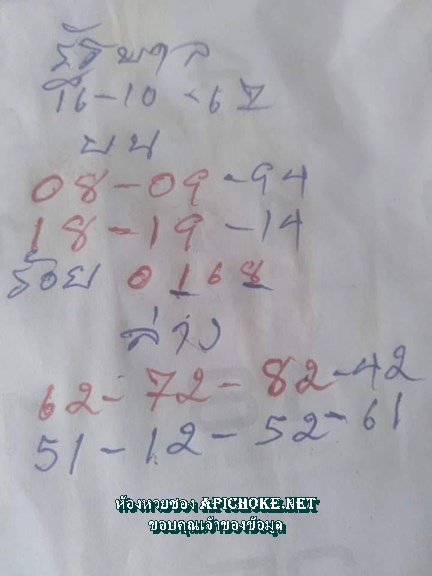 รัฐบาล
16-10-67
บน
08-09-94
18-19-14
ร้อย 0168
ล่าง
62-72-82-42
51-12-52-61
ห้องหวยซอง APICHOKE.NET
ขอบคุณเจ้าของข้อมูล